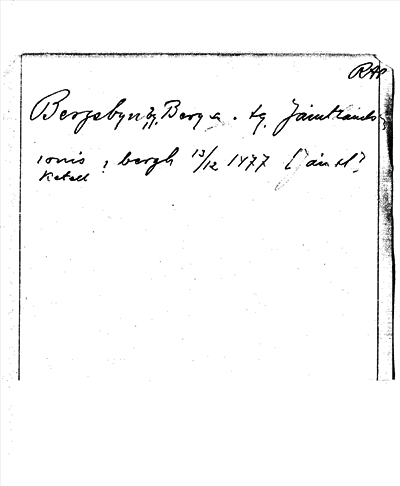 RAp
Bergsbyn, Berg s. tg. Jämtlands
ionis i bergh 13/12 1477 [Jämtl?
Ketell